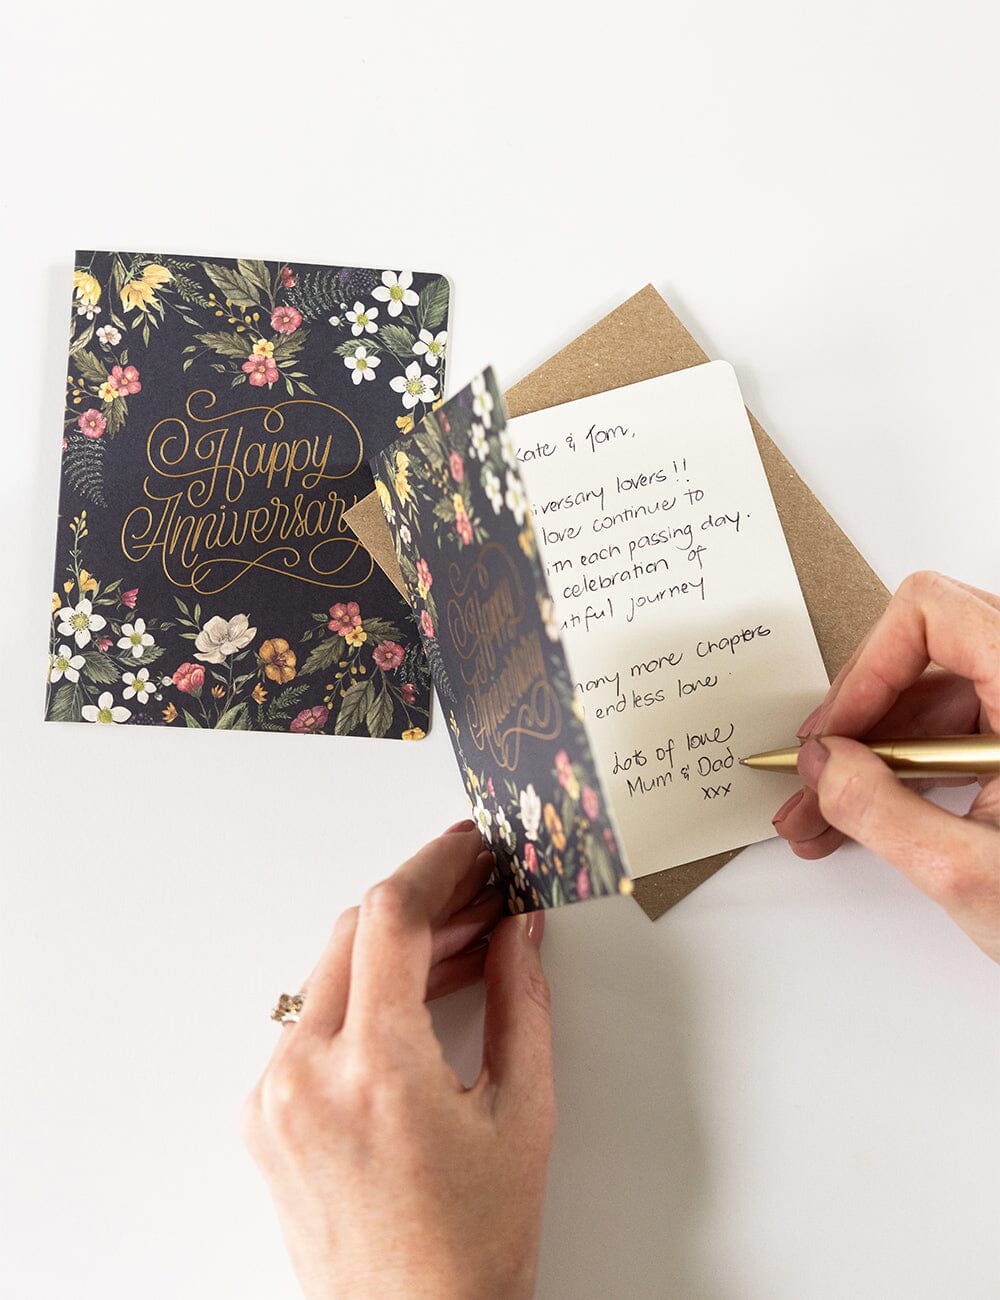 Happy
Anniversary
Happy
Anniversary
Kate & Tom,
iversary lovers!!
love continue to
each passing day.
celebration of
tiful journey
many more chapters
endless love.
Lots of love
Mum & Dad
xxx